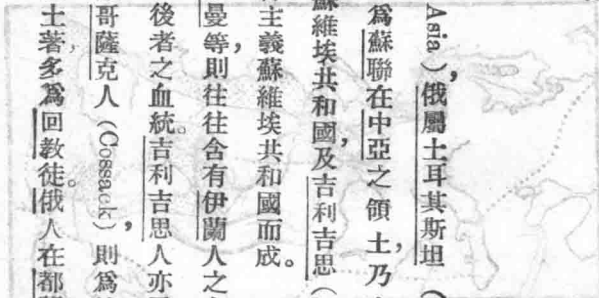 Asia），俄屬土耳其斯坦（
爲蘇聯在中亞之領土，乃
蘇維埃共和國，及吉利吉思（
主義蘇維埃共和國而成。
曼等，則往往含有伊蘭人之
後者之血統。吉利吉思人亦
哥薩克人（Cossack），則爲
土著，多爲回教徒。俄人在都